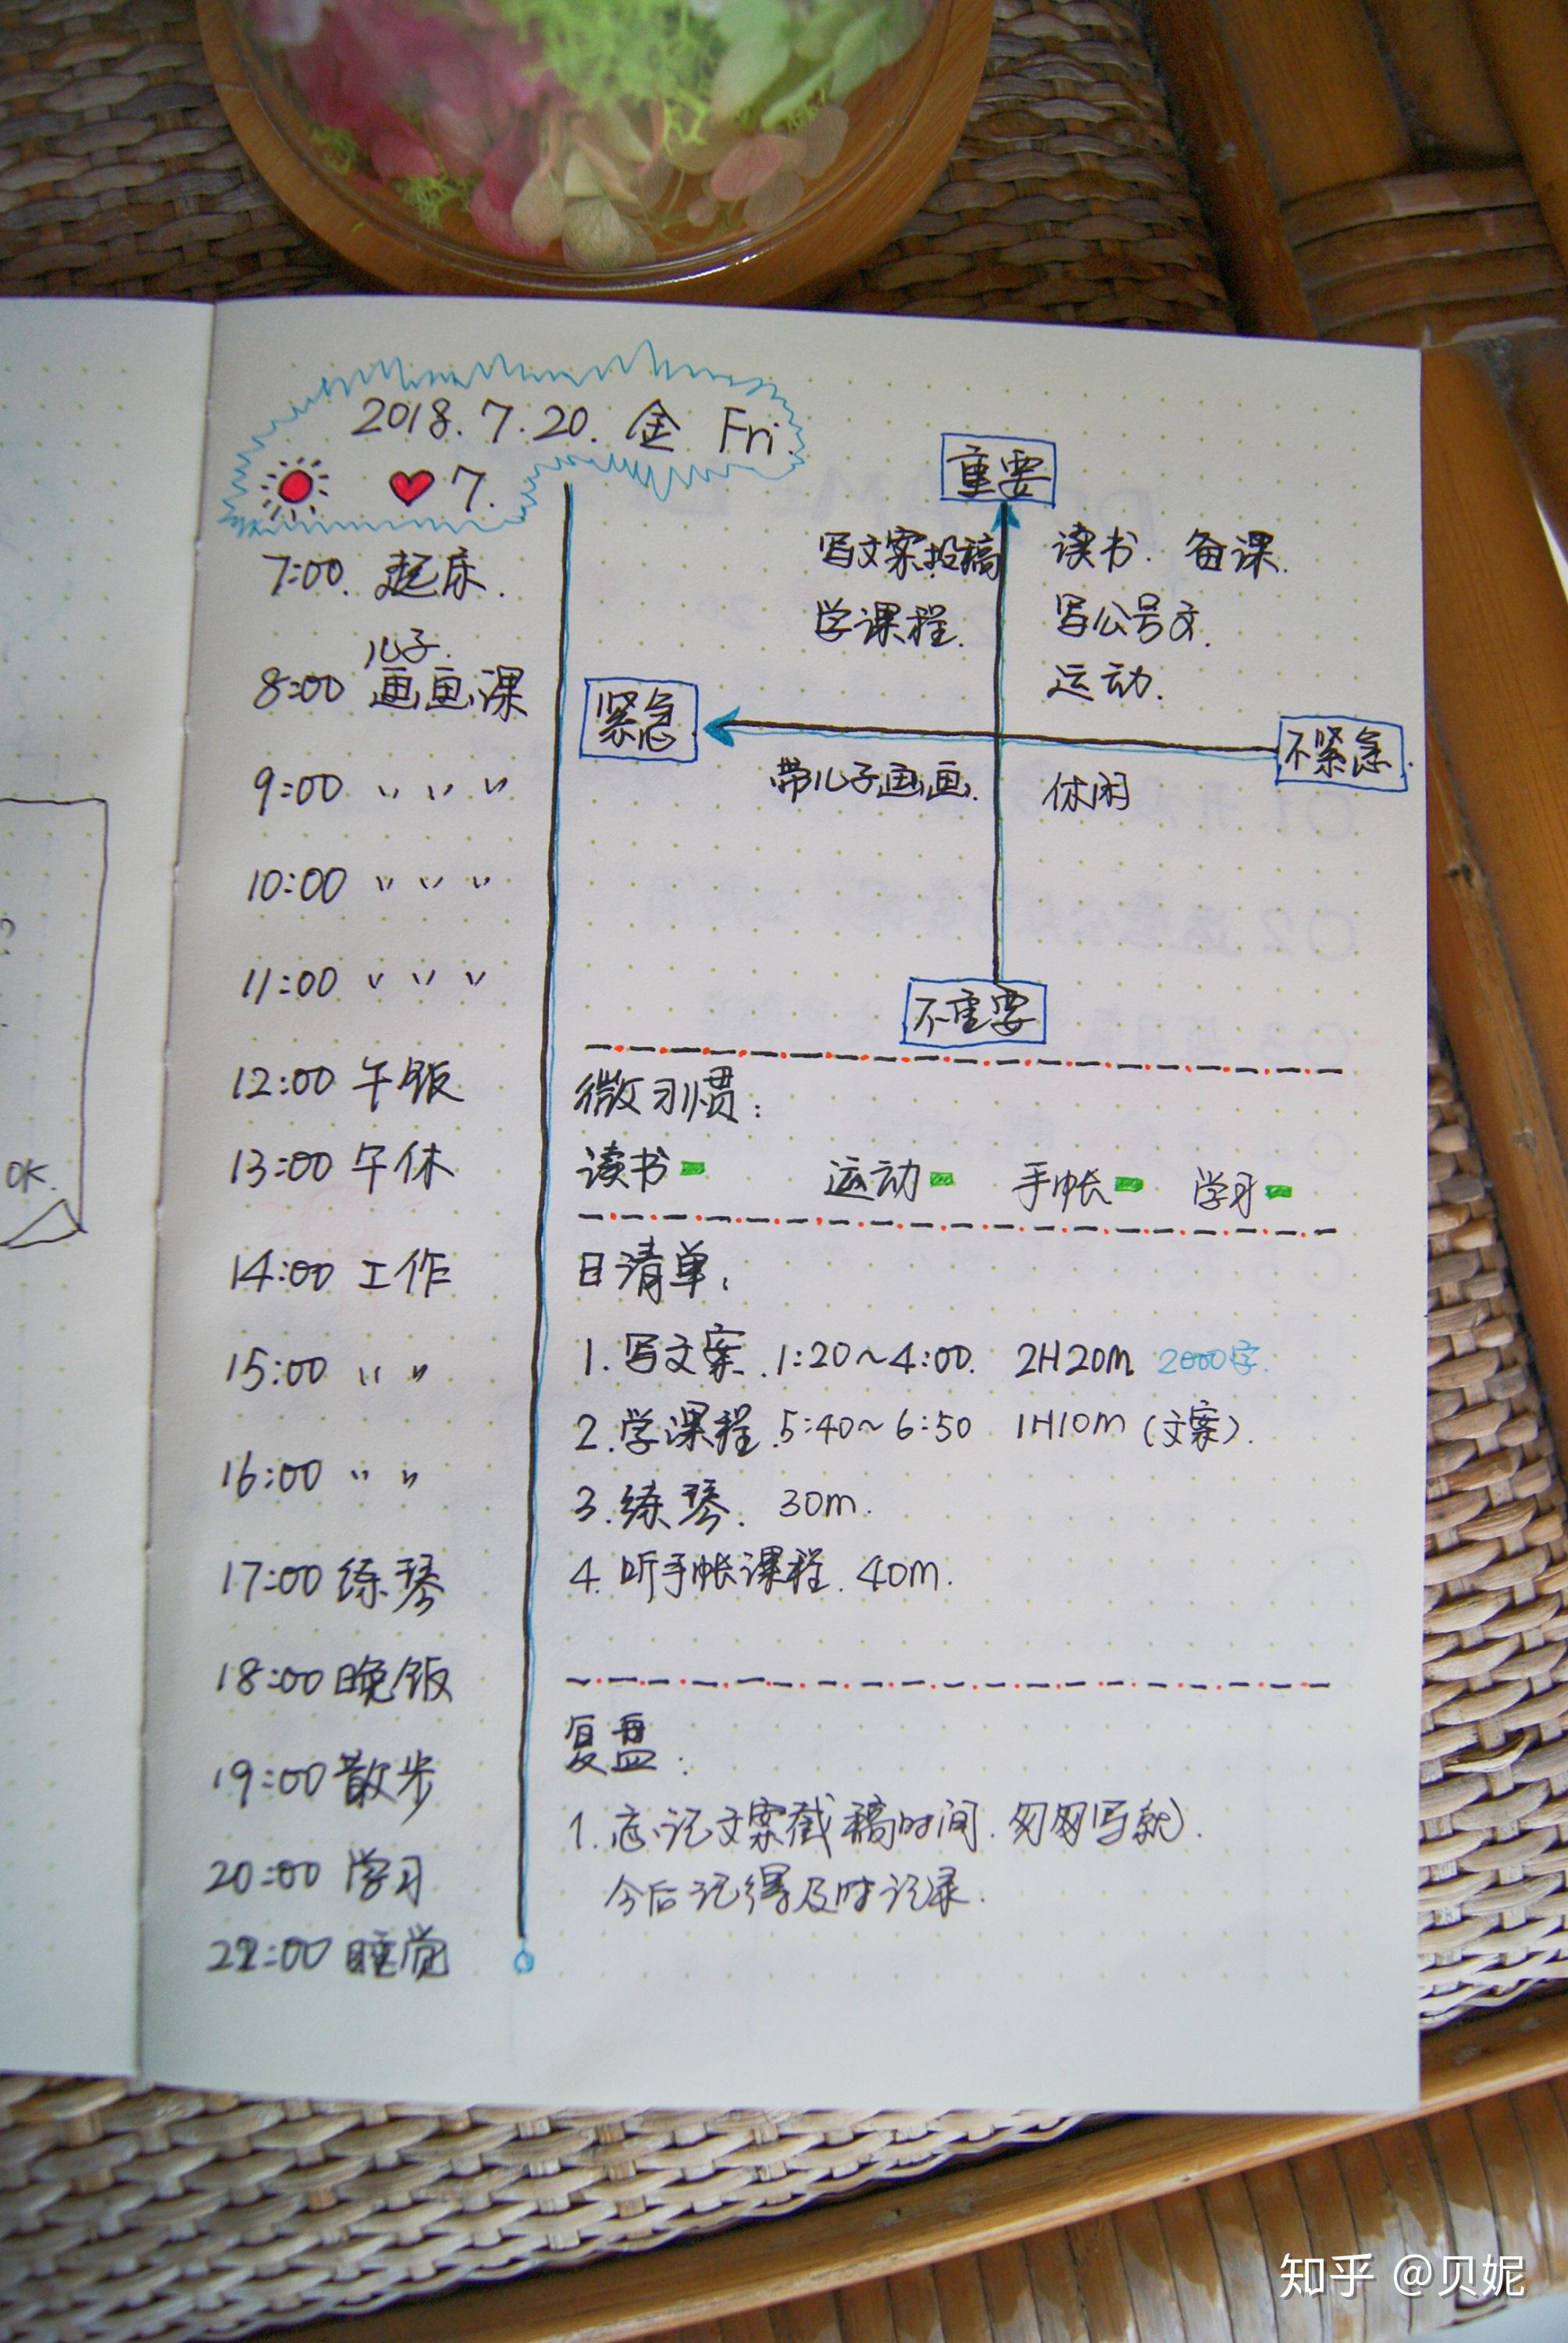 2018.7.20. 金 Fri.
7.
7:00. 起床.
儿子.
8:00 画画课
9:00 〃 〃 〃
10:00 〃 〃 〃
11:00 〃 〃 〃
12:00 午饭
13:00 午休
14:00 工作
15:00 〃 〃
16:00 〃 〃
17:00 练琴
18:00 晚饭
19:00 散步
20:00 学习
22:00 睡觉
重要
写文案投稿
学课程.
读书. 备课.
写公号文.
运动.
紧急
不紧急.
带儿子画画.
休闲
不重要
微习惯:
读书 运动 手帐 学习
日清单:
1. 写文案. 1:20~4:00. 2H20m 2000字.
2. 学课程. 5:40~6:50 1H10m (文案).
3. 练琴. 30m.
4. 听手帐课程. 40m.
复盘:
1. 忘记文案截稿时间. 匆匆写就.
今后记得及时记录.
OK.
知乎 @贝妮